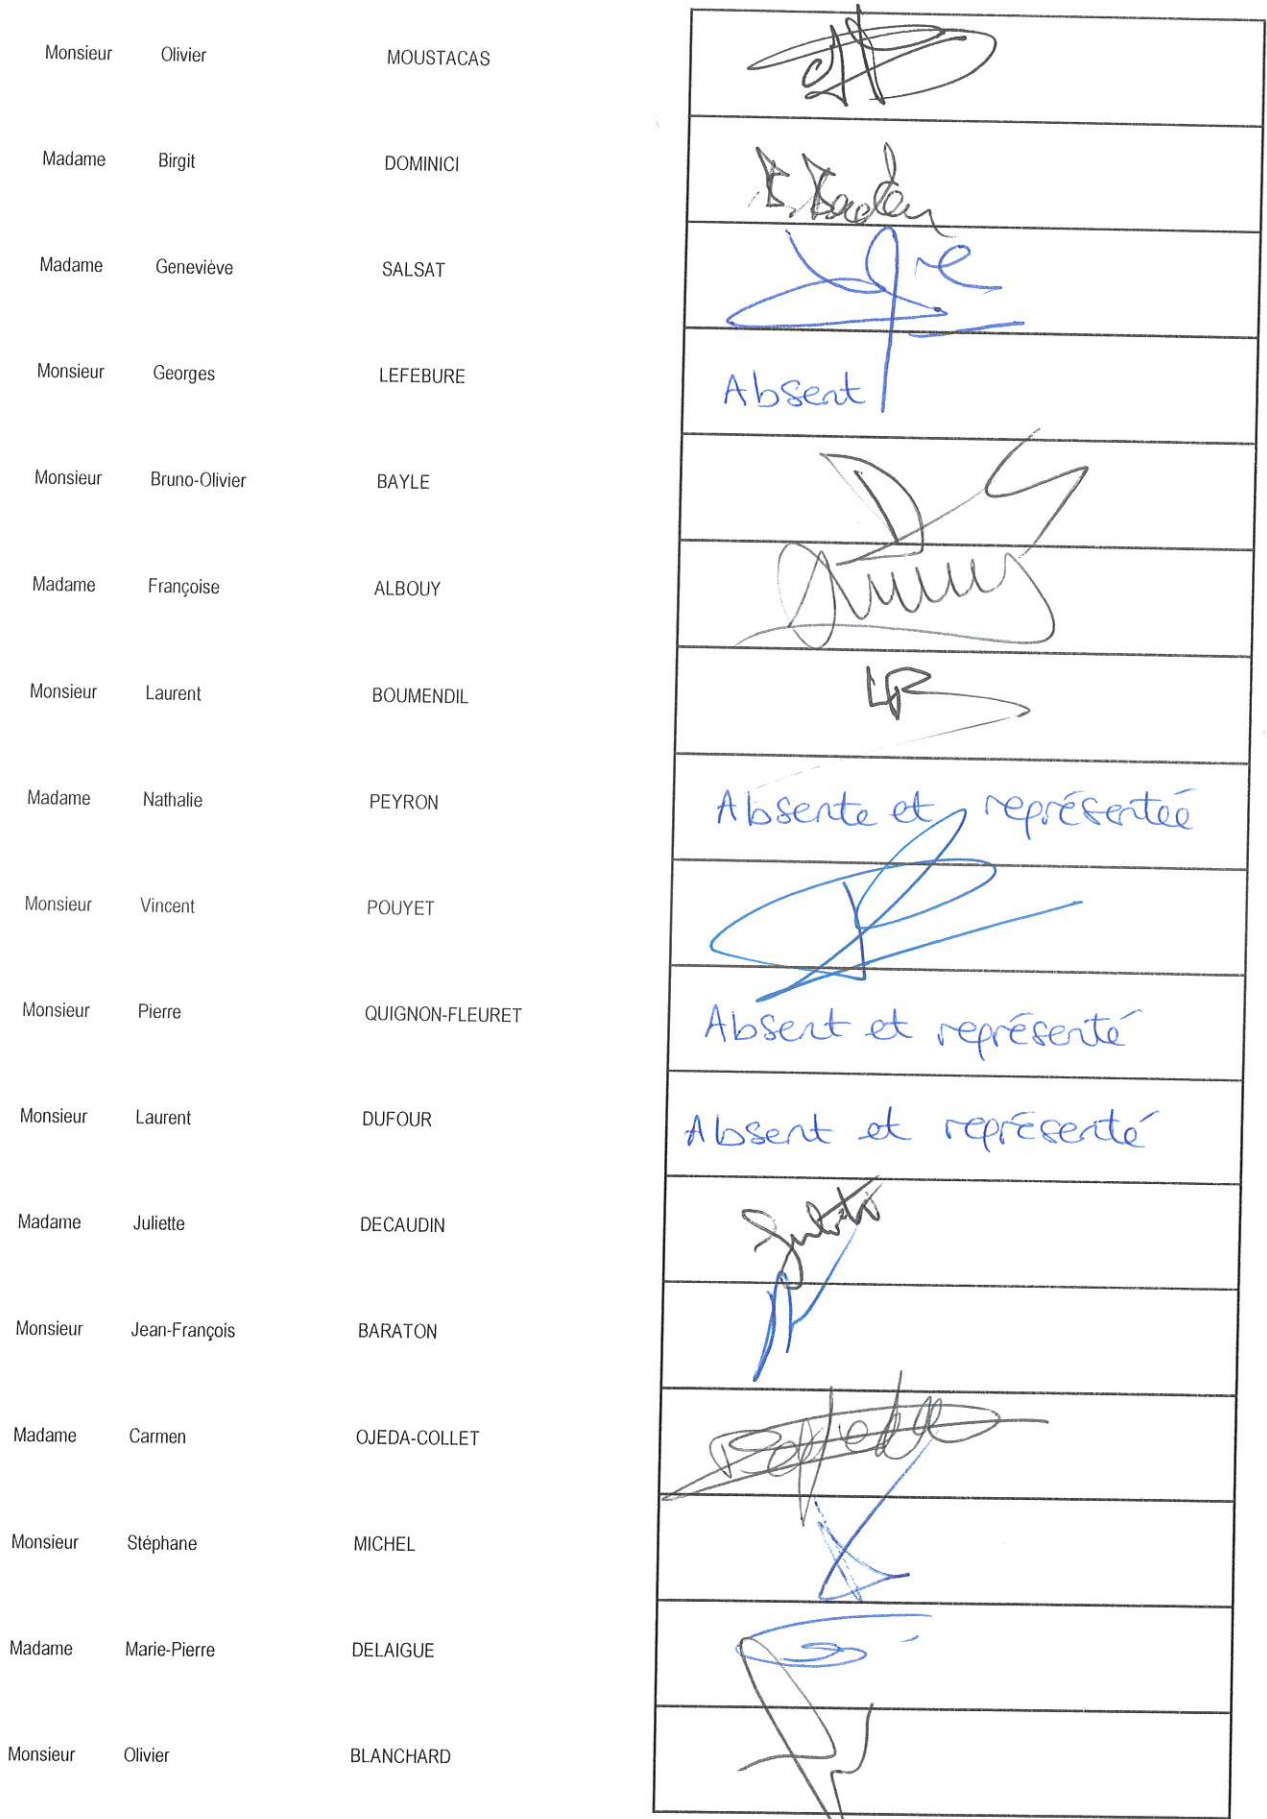 Monsieur Olivier MOUSTACAS
Madame Birgit DOMINICI
Madame Geneviève SALSAT
Monsieur Georges LEFEBURE Absent
Monsieur Bruno-Olivier BAYLE
Madame Françoise ALBOUY
Monsieur Laurent BOUMENDIL
Madame Nathalie PEYRON Absente et représentée
Monsieur Vincent POUYET
Monsieur Pierre QUIGNON-FLEURET Absent et représenté
Monsieur Laurent DUFOUR Absent et représenté
Madame Juliette DECAUDIN
Monsieur Jean-François BARATON
Madame Carmen OJEDA-COLLET
Monsieur Stéphane MICHEL
Madame Marie-Pierre DELAIGUE
Monsieur Olivier BLANCHARD